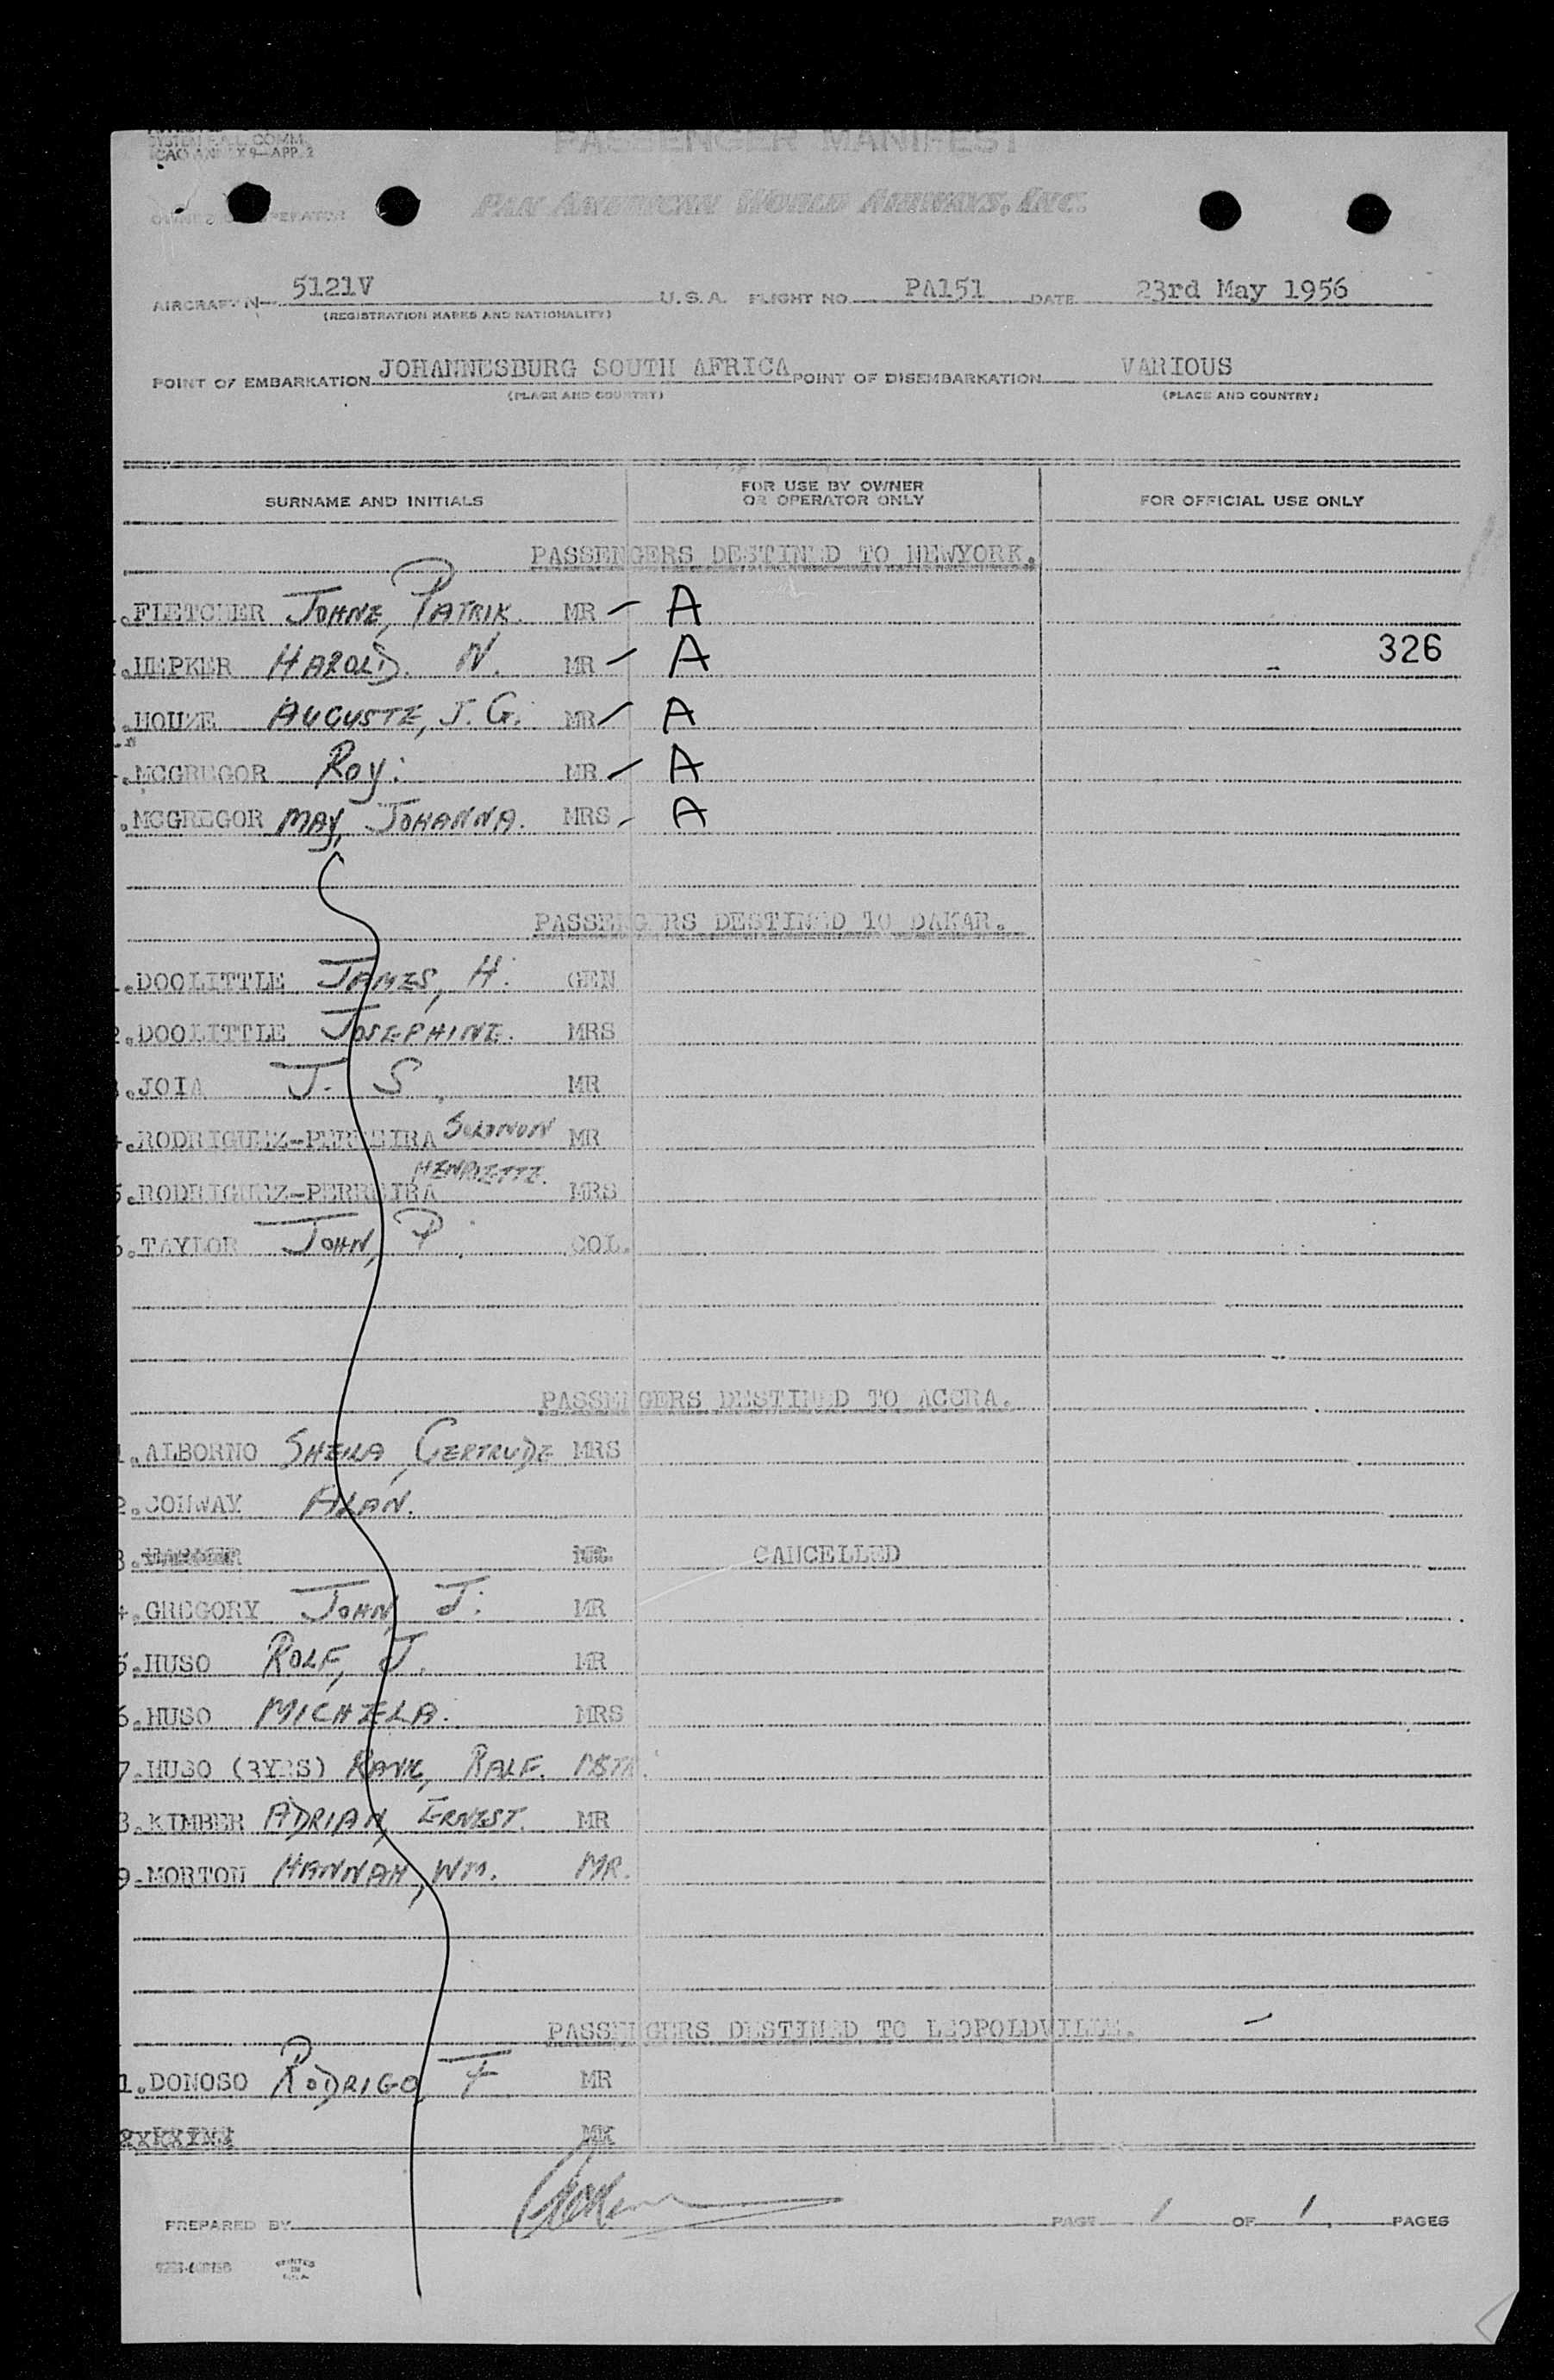 SYSTEM F.A.L. COMM.
ICAO ANNEX 9—APP. 2
PASSENGER MANIFEST
OWNER OR OPERATOR PAN AMERICAN WORLD AIRWAYS, INC.
AIRCRAFT N— 5121V U.S.A. FLIGHT NO. PA151 DATE 23rd May 1956
(REGISTRATION MARKS AND NATIONALITY)
POINT OF EMBARKATION JOHANNESBURG SOUTH AFRICA POINT OF DISEMBARKATION VARIOUS
(PLACE AND COUNTRY) (PLACE AND COUNTRY)
SURNAME AND INITIALS FOR USE BY OWNER OR OPERATOR ONLY FOR OFFICIAL USE ONLY
PASSENGERS DESTINED TO NEWYORK.
.FLETCHER JOHNE, PATRIK. MR – A
.HEPKER HAROLD. N. MR – A 326
.HOUZE AUGUSTE, J. G. MR – A
.MCGREGOR Roy. MR – A
.MCGREGOR MAY, JOHANNA. MRS – A
PASSENGERS DESTINED TO DAKAR.
.DOOLITTLE JAMES, H. GEN
2.DOOLITTLE JOSEPHINE. MRS
.JOIA J. S. MR
.RODRIGUEZ-PERREIRA SOLOMON MR
5.RODRIGUEZ-PERREIRA HENRIETTE. MRS
.TAYLOR JOHN, P. COL.
PASSENGERS DESTINED TO ACCRA.
1.ALBORNO SHEILA, GERTRUDE MRS
2.CONWAY ALAN.
3. CANCELLED
4.GREGORY JOHN, J. MR
5.HUSO ROLF, J. MR
6.HUSO MICHELA. MRS
7.HUSO (3YRS) RALF. MSTR.
8.KIMBER ADRIAN, ERNEST. MR
9.MORTON HANNAH, WM. MR.
PASSENGERS DESTINED TO LEOPOLDVILLE.
1.DONOSO RODRIGO, F MR
MR
PREPARED BY PAGE 1 OF 1 PAGES
PRINTED IN U.S.A.